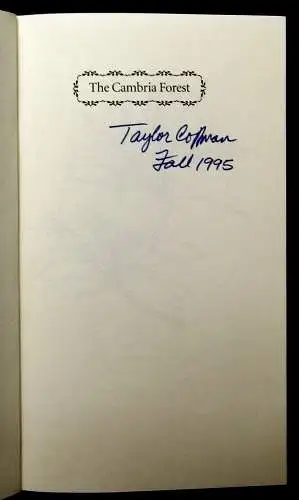 The Cambria Forest
Taylor Coffman
Fall 1995